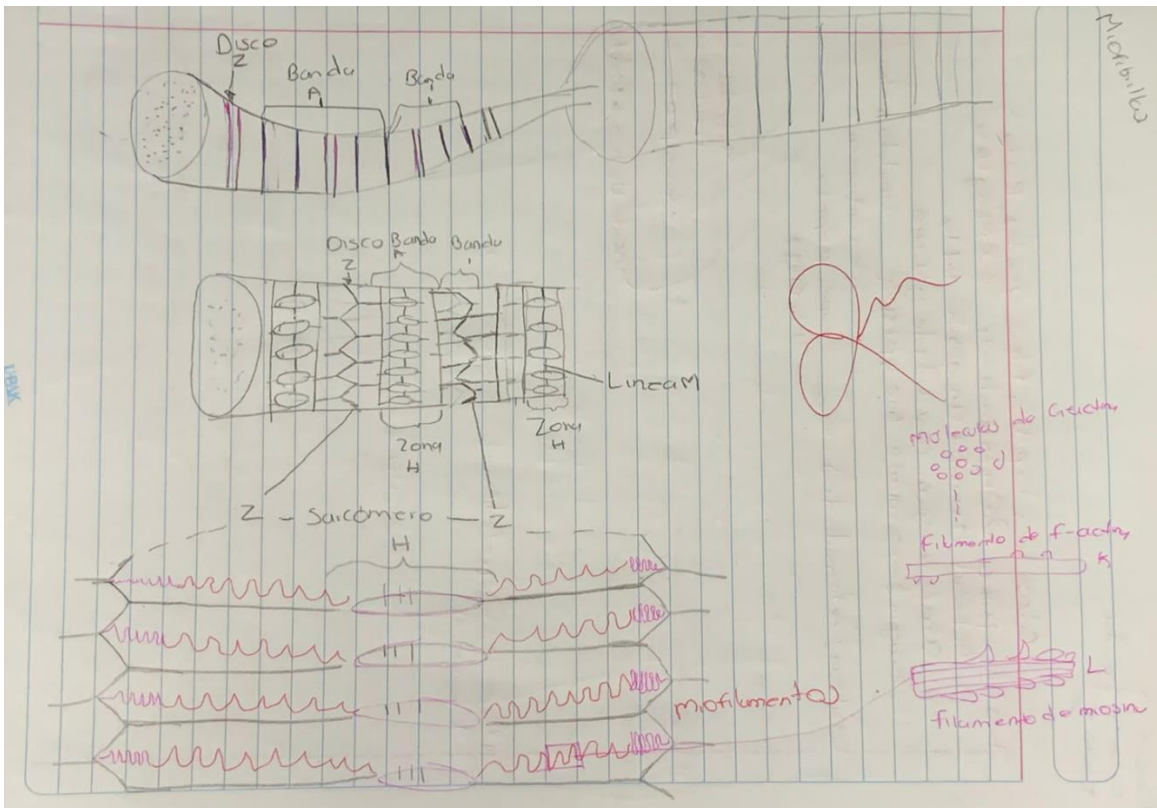 Disco
Z
Banda
A
Banda
I
Disco
Z
Banda
A
Banda
I
Linea M
Zona
H
Zona
H
Z - Sarcómero - Z
H
miofilamentos
Moleculas de
filamento de f-actin
K
L
filamento de